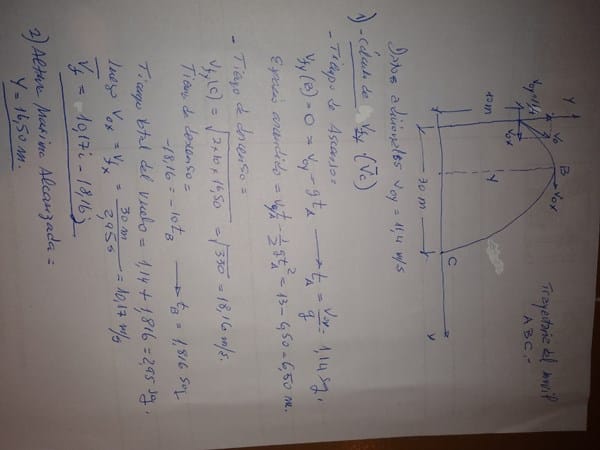 Trayectoria del movil
ABC.-
Y
B
Vox
Vo
Voy=11,4
Vox
10m
Y
30 m
C
x
Datos adicionales Voy = 11,4 m/s
1) - Cálculo de Vf (Vc)
- Tiempo de Ascenso =
Vfy(B) = 0 = Voy - g tA → tA = Voy/g = 1,14 sg.
Espacio ascendido = Voy tA - 1/2 g tA² = 13 - 6,50 = 6,50 m.
- Tiempo de descenso =
Vfy(C) = √2x10x16,50 = √330 = 18,16 m/s.
Tiempo de descenso =
-18,16 = -10 tB → tB = 1,816 seg
Tiempo total del vuelo = 1,14 + 1,816 = 2,95 sg.
Luego Vox = Vfx = 30 m / 2,95 s = 10,17 m/s
Vf = 10,17 i - 18,16 j
2) Altura Maxima Alcanzada =
Y = 16,50 m.